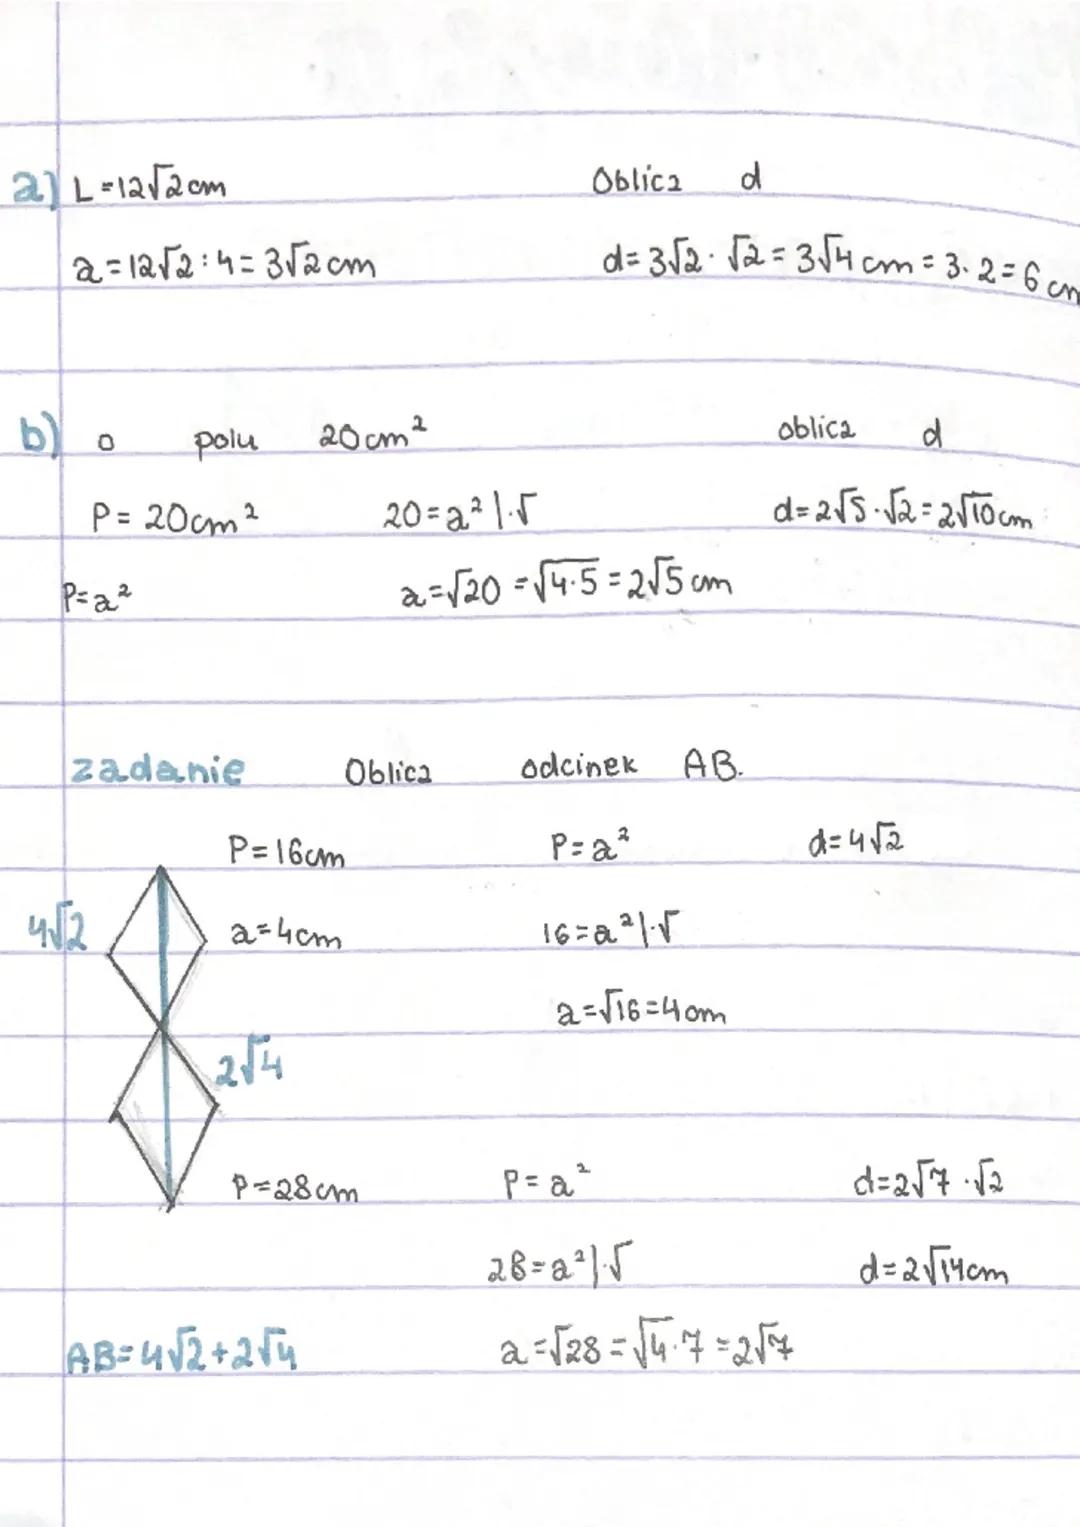 a) L=12√2cm Oblicz d
a=12√2:4=3√2cm d=3√2·√2=3√4cm=3·2=6cm
b) o polu 20cm² oblicz d
P=20cm² 20=a²|·√ d=2√5·√2=2√10cm
P=a² a=√20=√4·5=2√5cm
zadanie Oblicz odcinek AB.
P=16cm P=a² d=4√2
4√2 a=4cm 16=a²|·√
a=√16=4cm
2√4
P=28cm P=a² d=2√7·√2
28=a²|·√ d=2√14cm
AB=4√2+2√4 a=√28=√4·7=2√7